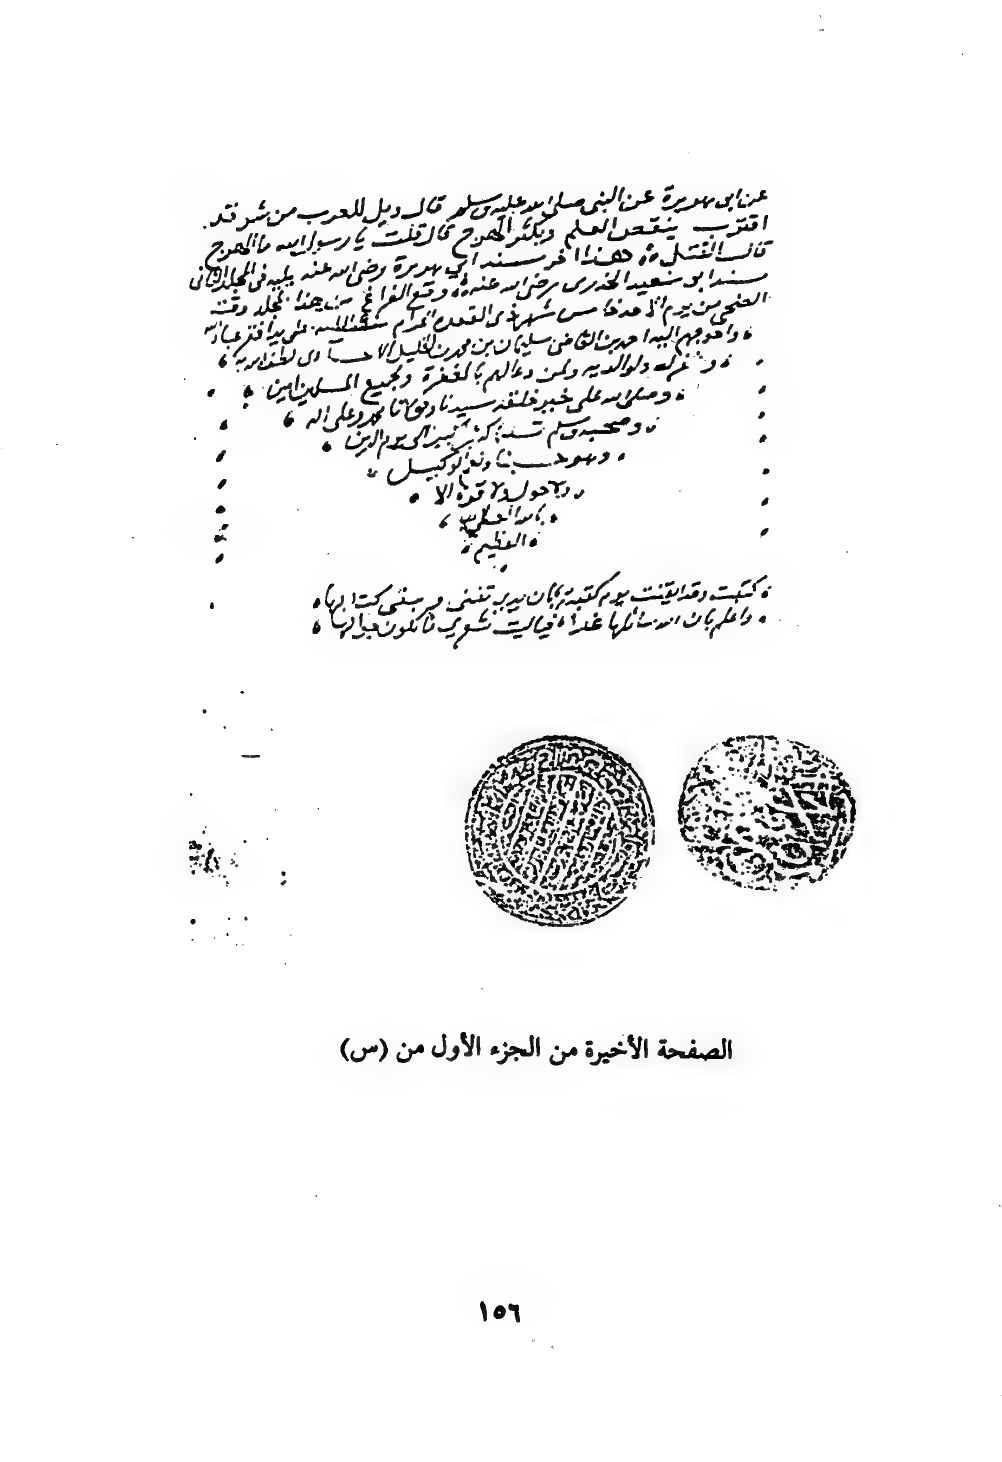 عن ابى هريرة عن النبى صلى الله عليه وسلم قال ويل للعرب من شر قد
اقترب ينقص العلم ويكثر الهرج قال قلت يا رسول الله ما الهرج
قال القتل هذا اخر مسند ابي هريرة رضى الله عنه يليه فى المجلد الثانى
مسند ابو سعيد الخدرى رضى الله عنه وقع الفراغ من هذا المجلد وقت
الضحى من يوم الاحد خامس شهر ذى القعدة الحرام على يد افقر عباد الله
واحوجهم اليه احمد بن القاضى سليمان بن محمد بن الخليل لطف الله به
وغفر له ولوالديه ولمن دعا لهم بالمغفرة ولجميع المسلمين امين
وصلى الله على خير خلقه سيدنا ومولانا محمد وعلى اله
وصحبه وسلم تسليما كثيرا الى يوم الدين
وهو حسبنا ونعم الوكيل
ولا حول ولا قوة الا
بالله العلى
العظيم
كتبت وقد ايقنت يوم كتبته بان يدى تفنى ويبقى كتابها
واعلم بان الله سائلها غدا فياليت شعرى ما يكون جوابها
الصفحة الأخيرة من الجزء الأول من (س)
١٥٦